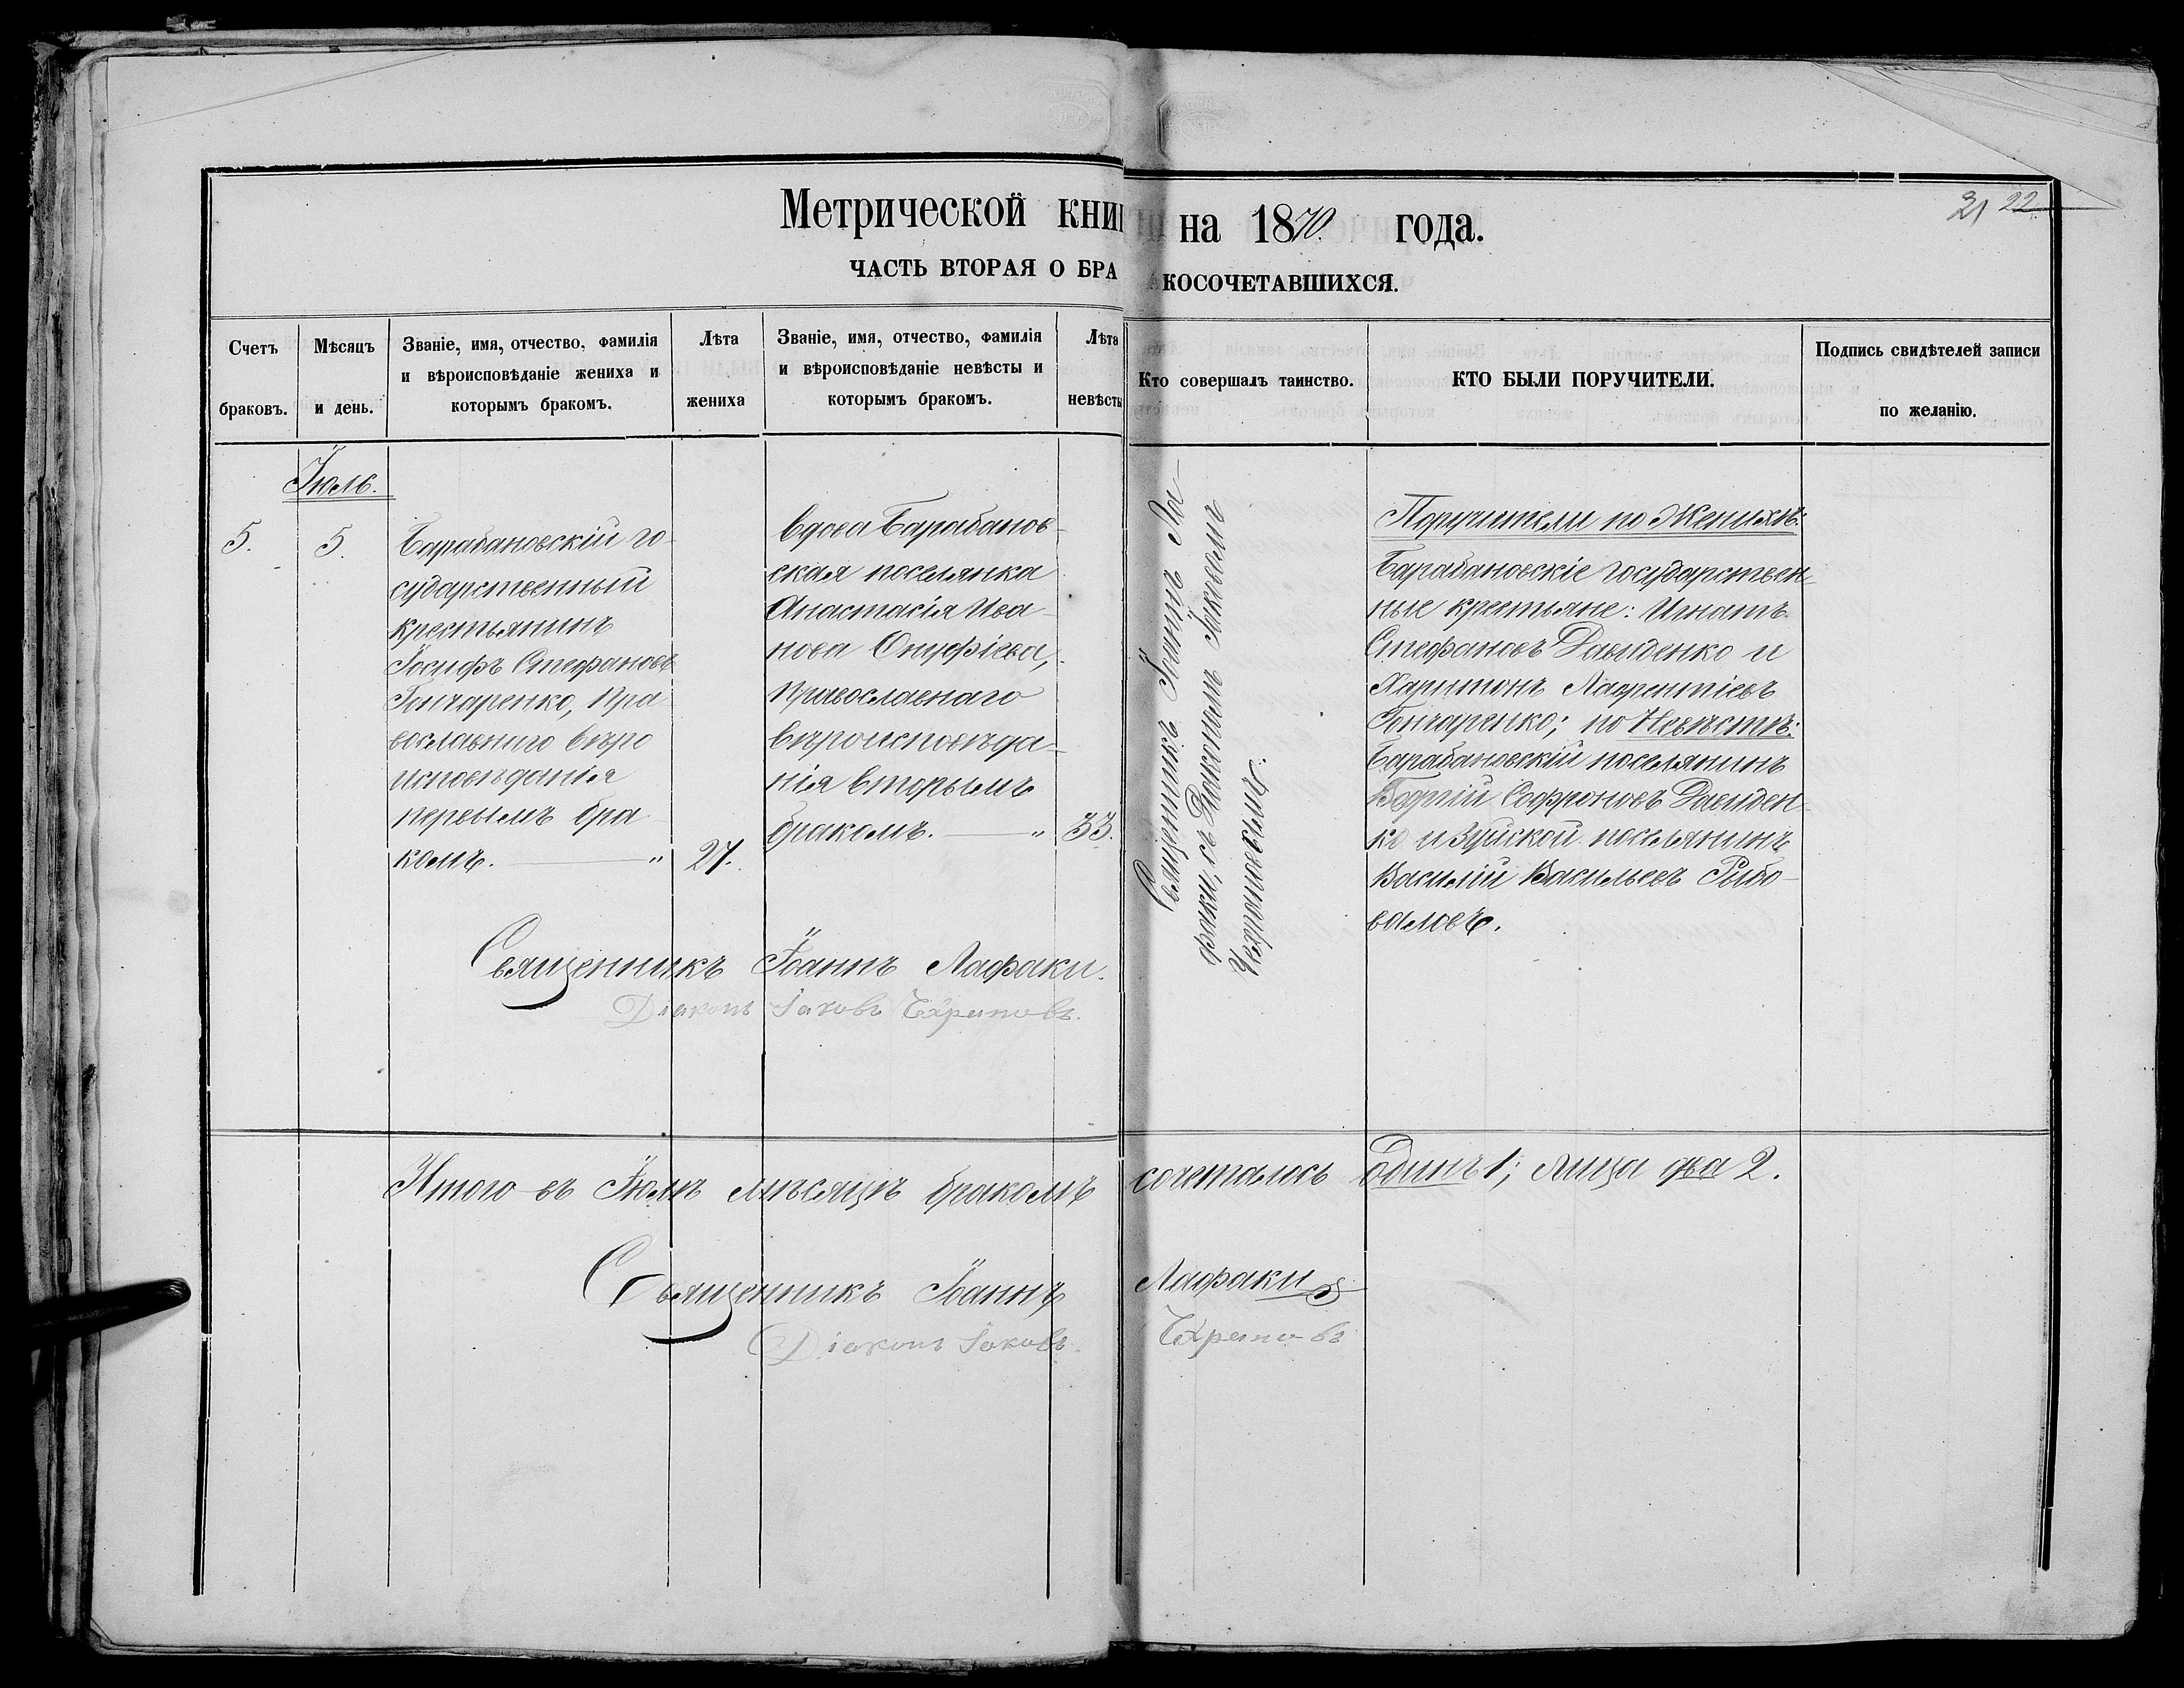 Метрической книги на 1870. года.
21 22
ЧАСТЬ ВТОРАЯ О БРАКОСОЧЕТАВШИХСЯ.
Счетъ браковъ.
Мѣсяцъ и день.
Званіе, имя, отчество, фамилія
и вѣроисповѣданіе жениха и
которымъ бракомъ.
Лѣта жениха
Званіе, имя, отчество, фамилія
и вѣроисповѣданіе невѣсты и
которымъ бракомъ.
Лѣта невѣсты
Кто совершалъ таинство.
КТО БЫЛИ ПОРУЧИТЕЛИ.
Подпись свидѣтелей записи
по желанію.
Іюль.
5.
5.
Барабановскій го-
сударственный
крестьянинъ
Іосифъ Стефановъ
Гончаренко, пра-
вославнаго вѣро
исповѣданія
первымъ бра-
комъ. — "
27.
Вдова Барабанов-
ская поселянка
Анастасія Ива-
нова Онуфріева,
православнаго
вѣроисповѣда-
нія вторымъ
бракомъ. — "
33.
Священникъ Іоаннъ Ла-
факи, съ Діакономъ Іаковомъ
Поручители по Женихѣ:
Барабановскіе государствен-
ные крестьяне: Игнатъ
Стефановъ Давиденко и
Харитонъ Лаврентіевъ
Гончаренко; по Невѣстѣ:
Барабановскій поселянинъ
Софроновъ Давиден-
ко и Зуйской поселянинъ
Василій Васильевъ Рыбо-
валовъ.
Священникъ Іоаннъ Лафаки.
Діаконъ Іаковъ
Итого въ Іюлѣ мѣсяцѣ бракомъ сочеталось одинъ 1; лица два 2.
Священникъ Іоаннъ Лафаки
Діаконъ Іаковъ